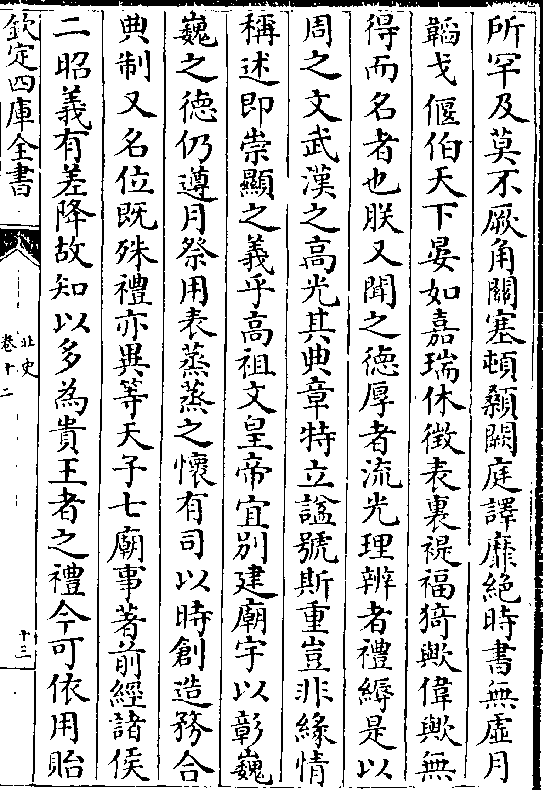 所罕及莫不厥角關塞頓顙闕庭譯靡絶時書無虚月
韜戈偃伯天下晏如嘉瑞休徵表裏禔福猗歟偉歟無
得而名者也朕又聞之德厚者流光理辨者禮縟是以
周之文武漢之高光其典章特立諡號斯重豈非緣情
稱述即崇顯之義乎高祖文皇帝宜别建廟宇以彰巍
巍之德仍遵月祭用表蒸蒸之懷有司以時創造務合
典制又名位既殊禮亦異等天子七廟事著前經諸侯
二昭義有差降故知以多為貴王者之禮今可依用貽
欽定四庫全書
北史
卷十二
十三